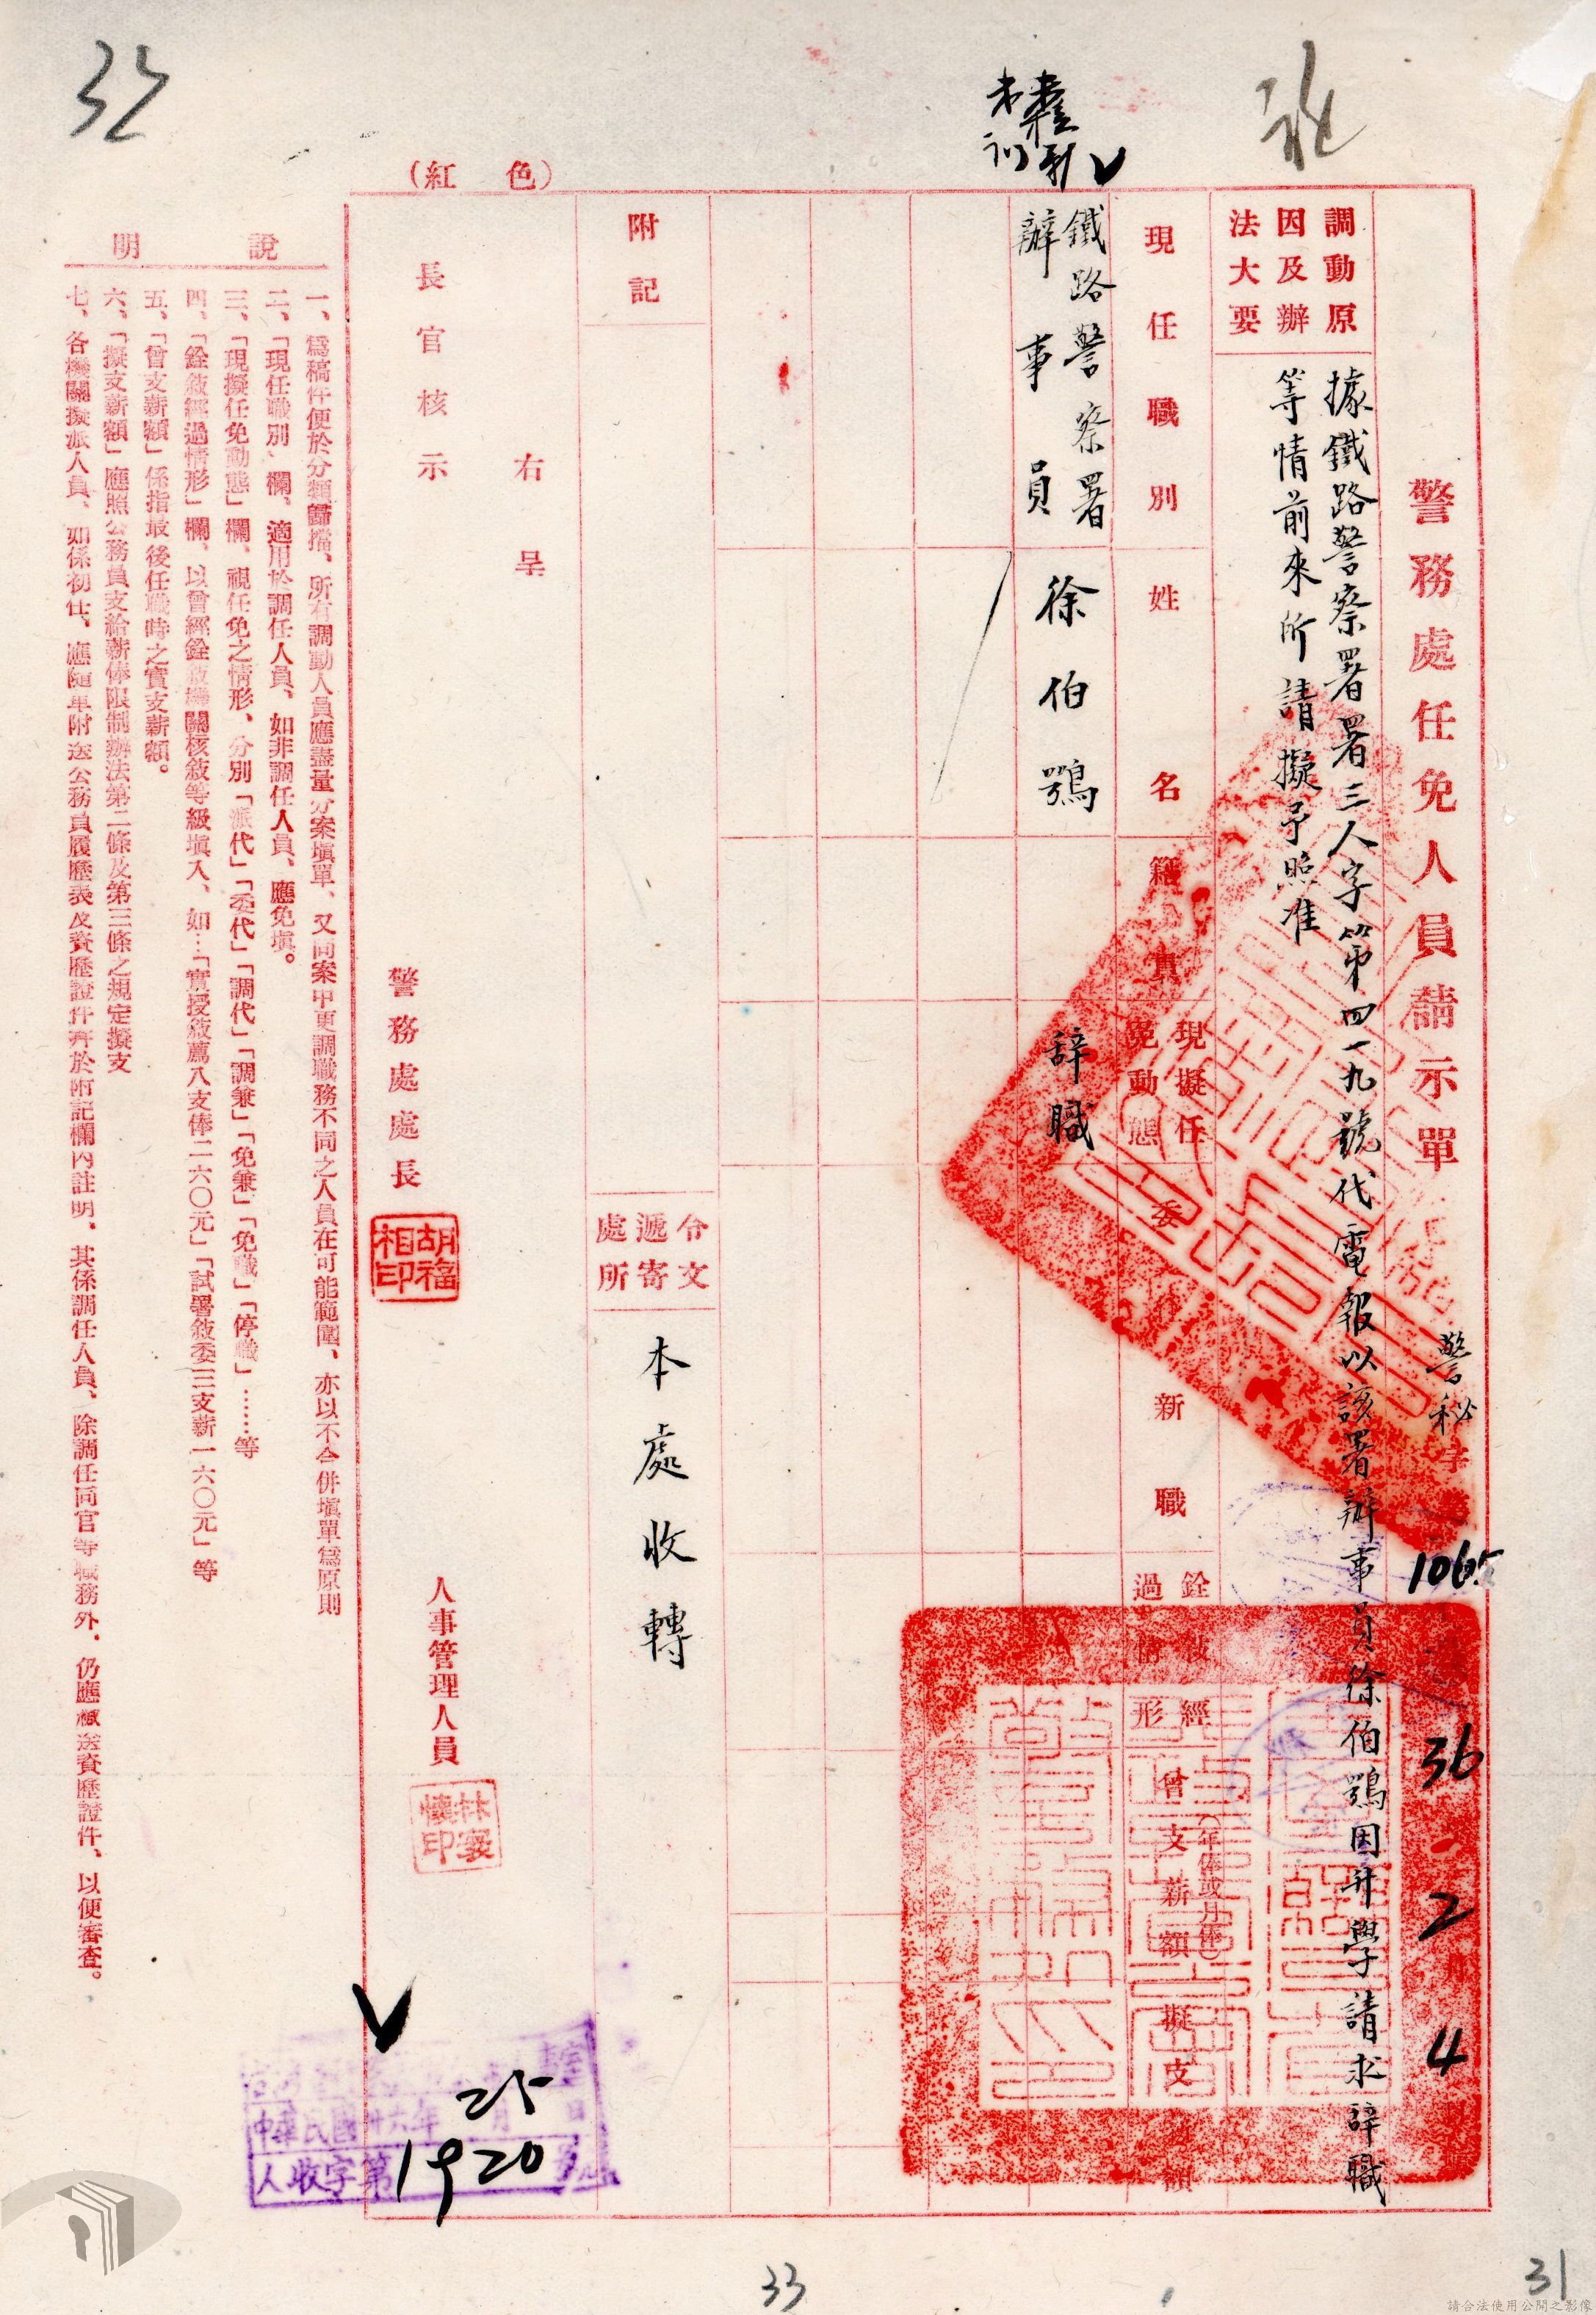 警務處任免人員請示單
警秘字第
1065
36 2 4
調動原
因及辦
法大要
據鐵路警察署署三人字第四一九號代電報以該署辦事員徐伯鶚因升學請求辞職
等情前來所請擬予照准
現任職別
姓名
籍貫
現擬任
免動態
委任新職
銓敘經
過情形
曾支薪額
(年俸或月俸)
擬支薪額
鐵路警察署
辦事員
徐伯鶚
辞職
附記
令文
遞寄
處所
本處收轉
右呈
長官核示
警務處處長
胡福
相印
人事管理人員
(紅色)
說明
一、爲稿件便於分類歸檔、所有調動人員應盡量分案塡單、又同案中更調職務不同之人員在可能範圍、亦以不合併塡單爲原則
二、「現任職別」欄、適用於調任人員、如非調任人員、應免塡。
三、「現擬任免動態」欄、視任免之情形、分別「派代」「委代」「調代」「調兼」「免兼」「免職」「停職」……等
四、「銓敘經過情形」欄、以曾經銓敘機關核敘等級塡入、如…「實授敘薦八支俸二六〇元」「試署敘委三支薪一六〇元」等
五、「曾支薪額」係指最後任職時之實支薪額。
六、「擬支薪額」應照公務員支給薪俸限制辦法第二條及第三條之規定擬支
七、各機關擬派人員、如係初任、應隨單附送公務員履歷表及資歷證件幷於附記欄內註明、其係調任人員、除調任同官等職務外、仍應檢送資歷證件、以便審查。
中華民國卅六年 月25日
人收字第1920號
33
31
請合法使用公開之影像